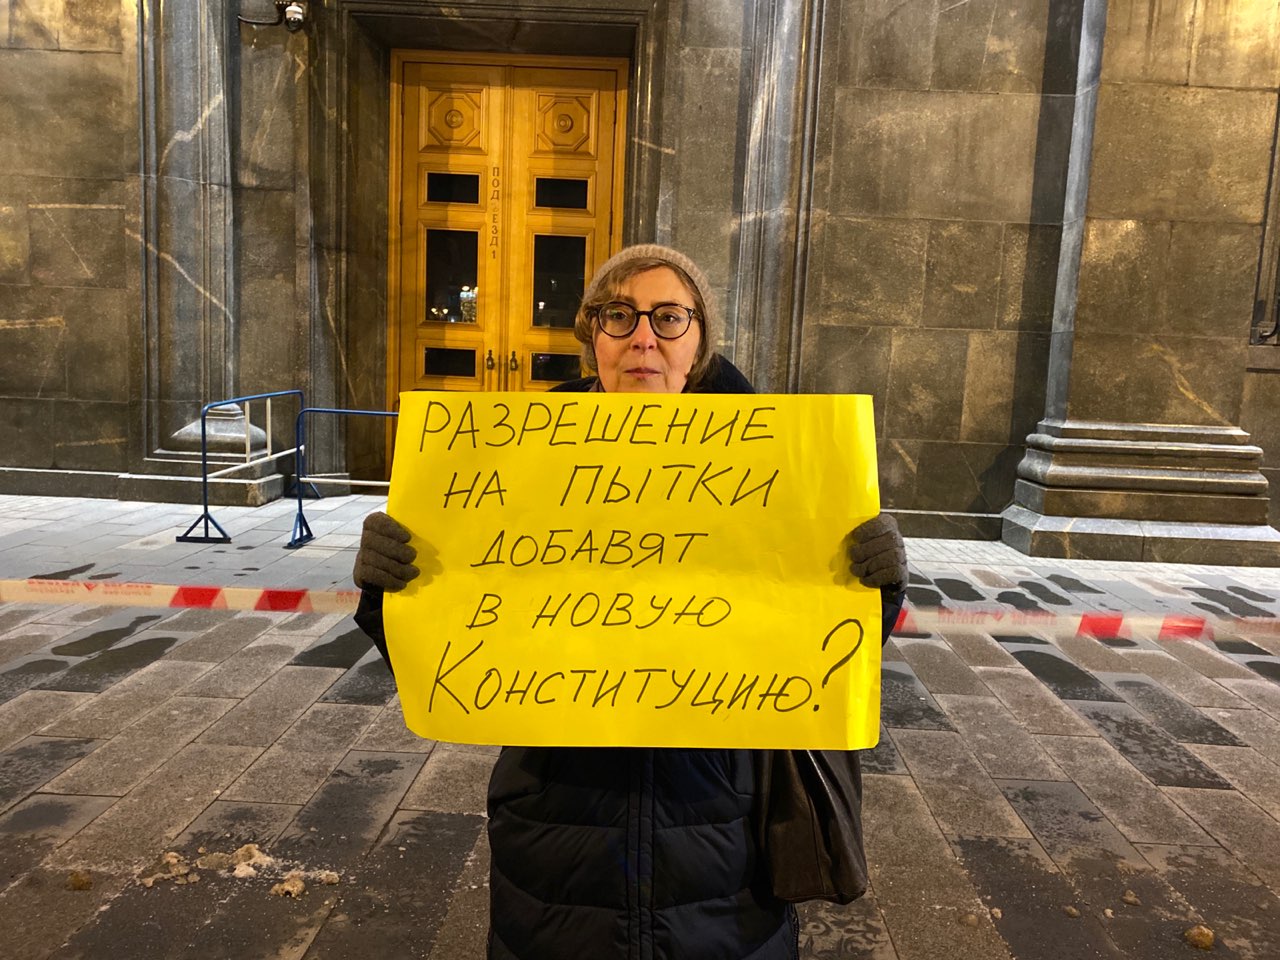 ПОДЪЕЗД 1
РАЗРЕШЕНИЕ
НА ПЫТКИ
ДОБАВЯТ
В НОВУЮ
КОНСТИТУЦИЮ?